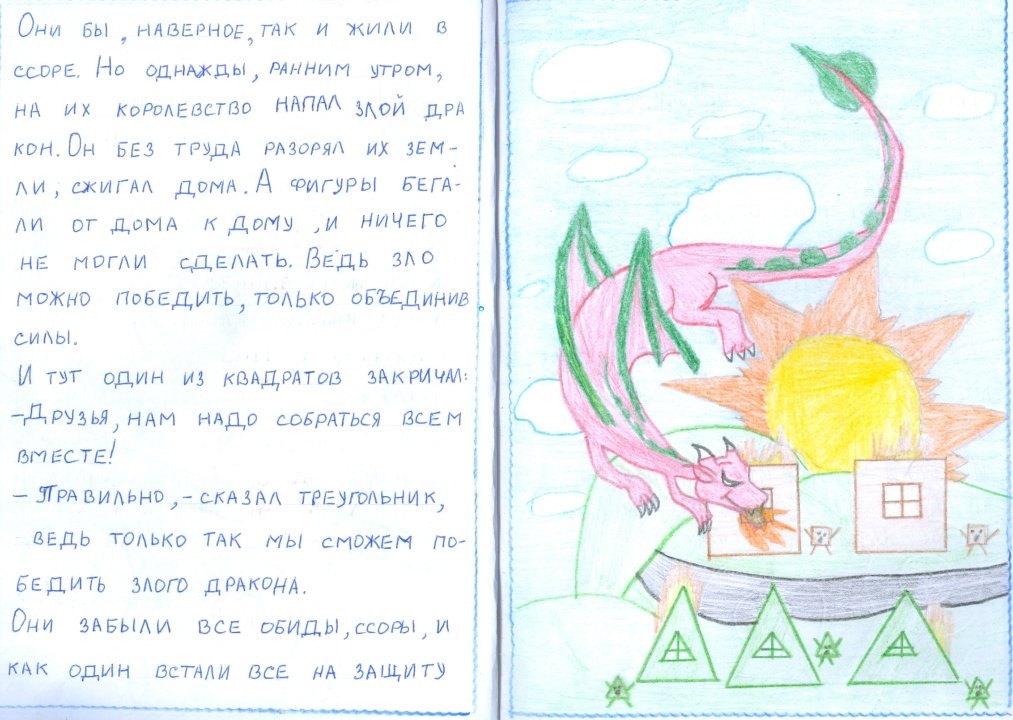 Они бы, наверное, так и жили в
ссоре. Но однажды, ранним утром,
на их королевство напал злой дра
кон. Он без труда разорял их зем-
ли, сжигал дома. А фигуры бега-
ли от дома к дому, и ничего
не могли сделать. Ведь зло
можно победить, только объединив
силы.
И тут один из квадратов закричал:
-Друзья, нам надо собраться всем
вместе!
- Правильно, - сказал треугольник,
ведь только так мы сможем по-
бедить злого дракона.
Они забыли все обиды, ссоры, и
как один встали все на защиту